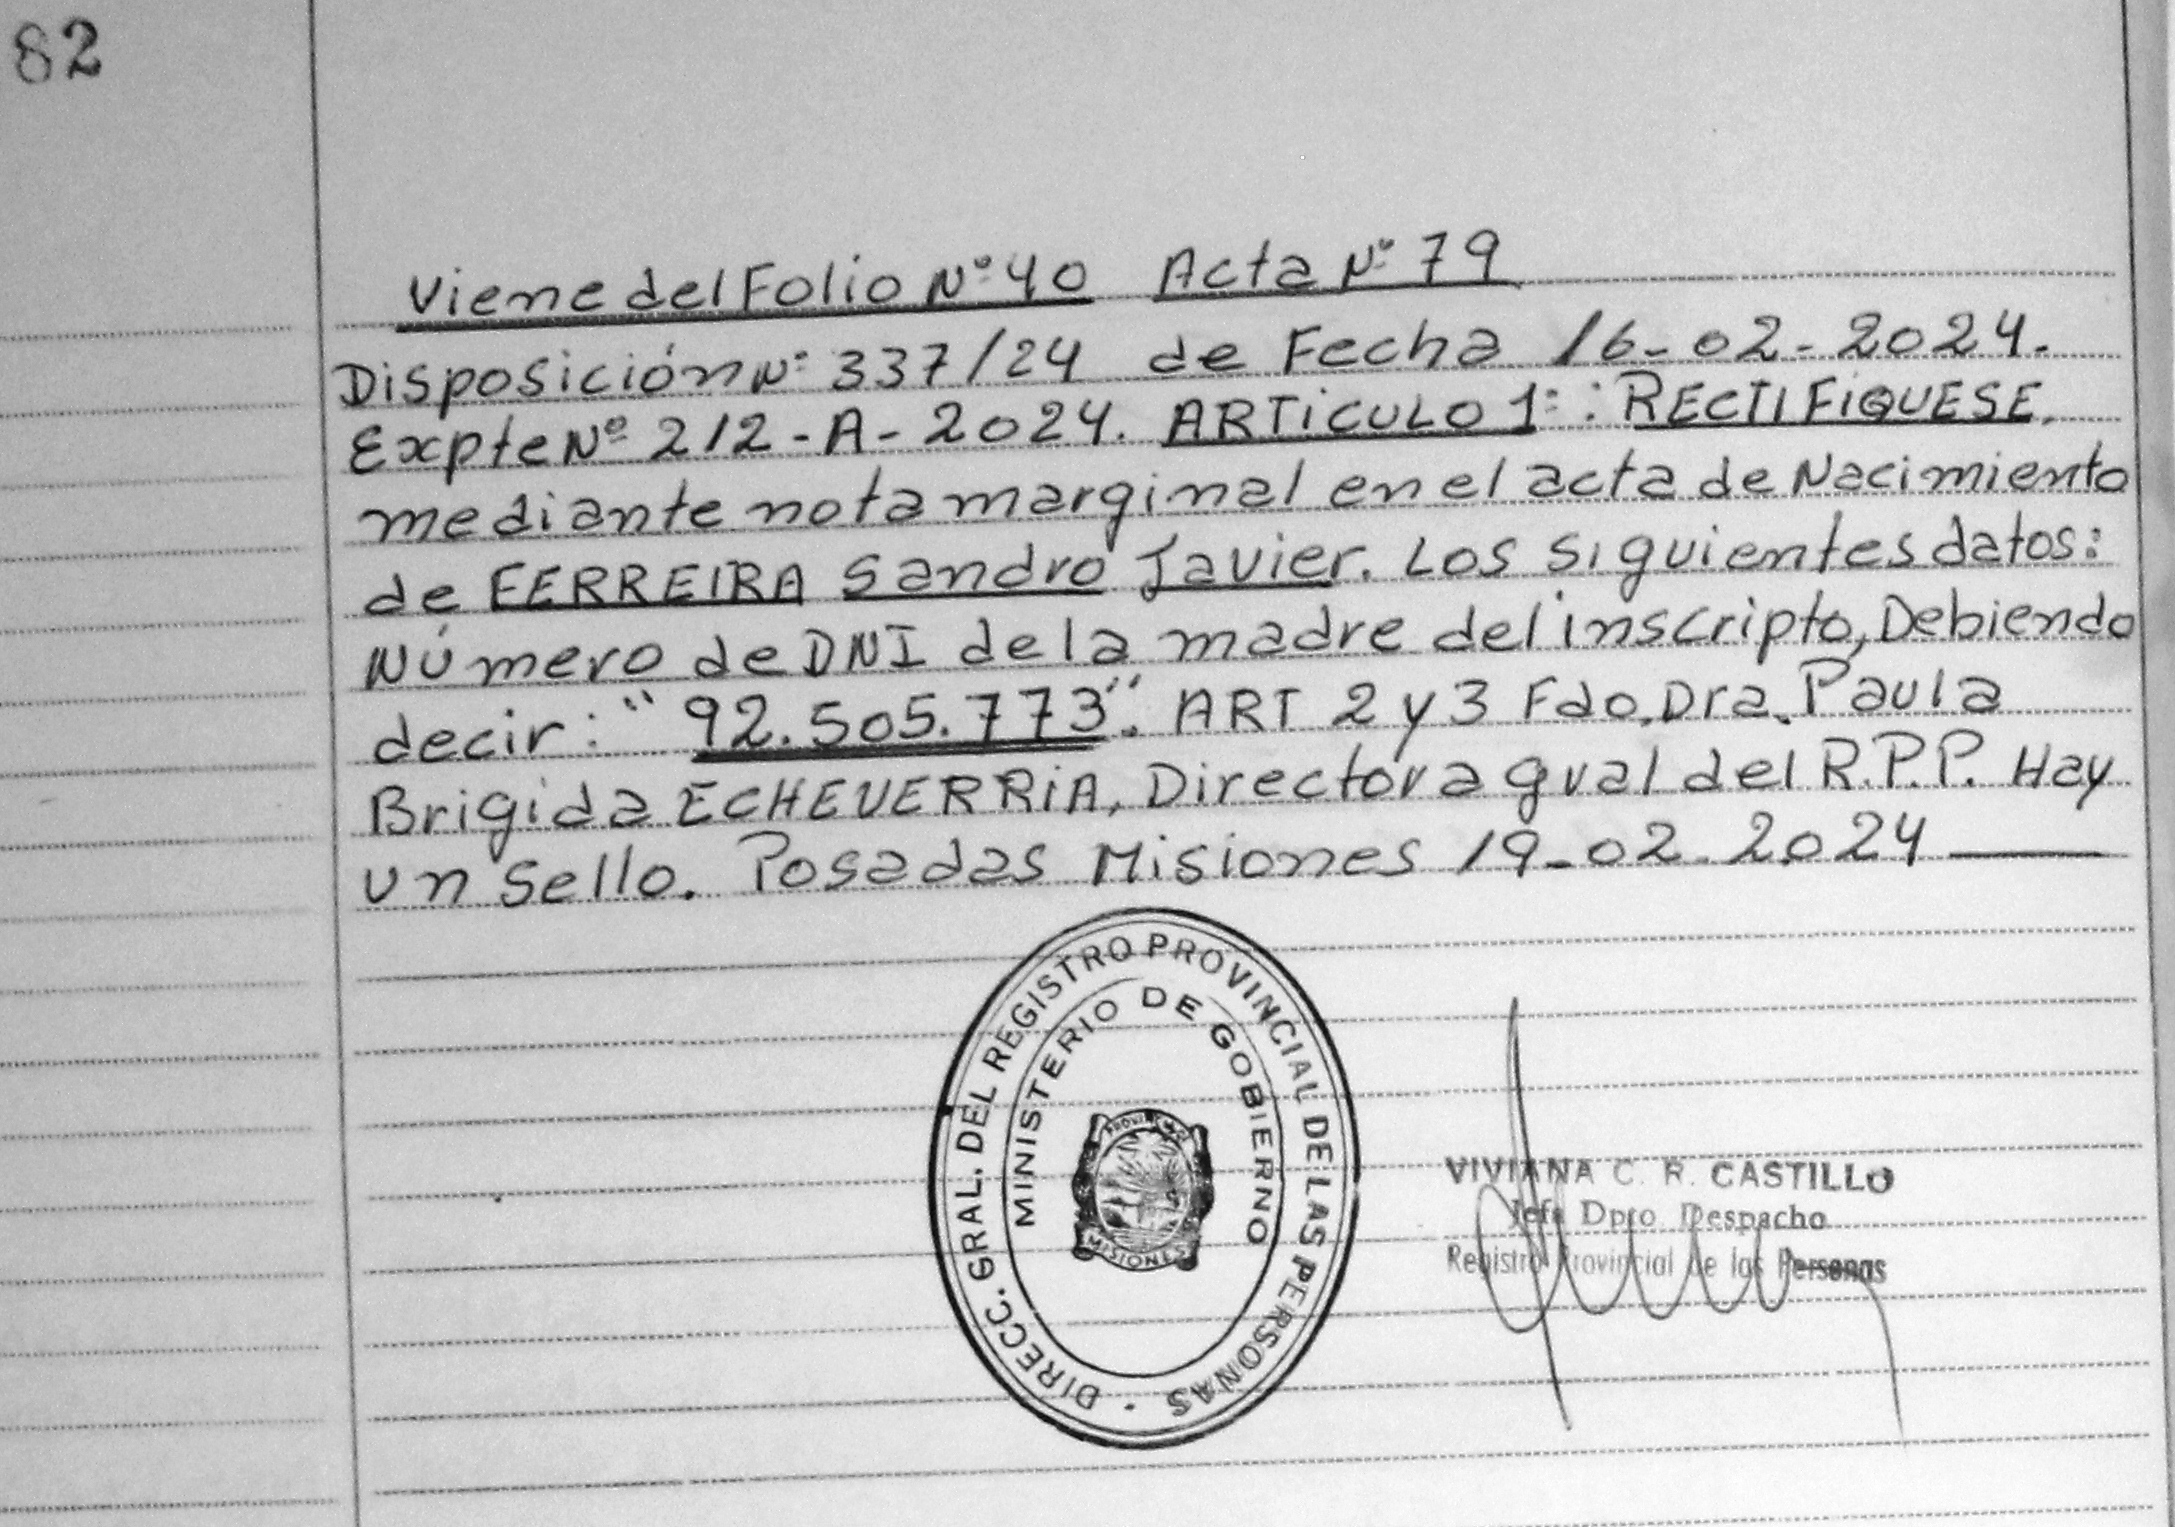 82
Viene del Folio Nº 40 Acta Nº 79
Disposición Nº 337/24 de Fecha 16-02-2024.
Expte Nº 212-A-2024. ARTiCULO 1º: RECTIFiQUESE,
mediante nota marginal en el acta de Nacimiento
de FERREIRA Sandro Javier. Los siguientes datos:
Número de DNI de la madre del inscripto, Debiendo
decir: "92.505.773". ART 2 y 3 Fdo. Dra. Paula
Brigida ECHEVERRiA, Directora gral del R.P.P. Hay
un sello. Posadas Misiones 19-02-2024
DIRECC. GRAL. DEL REGISTRO PROVINCIAL DE LAS PERSONAS
MINISTERIO DE GOBIERNO
MISIONES
VIVIANA C. R. CASTILLO
Jefe Dpto Despacho
Registro Provincial de las Personas